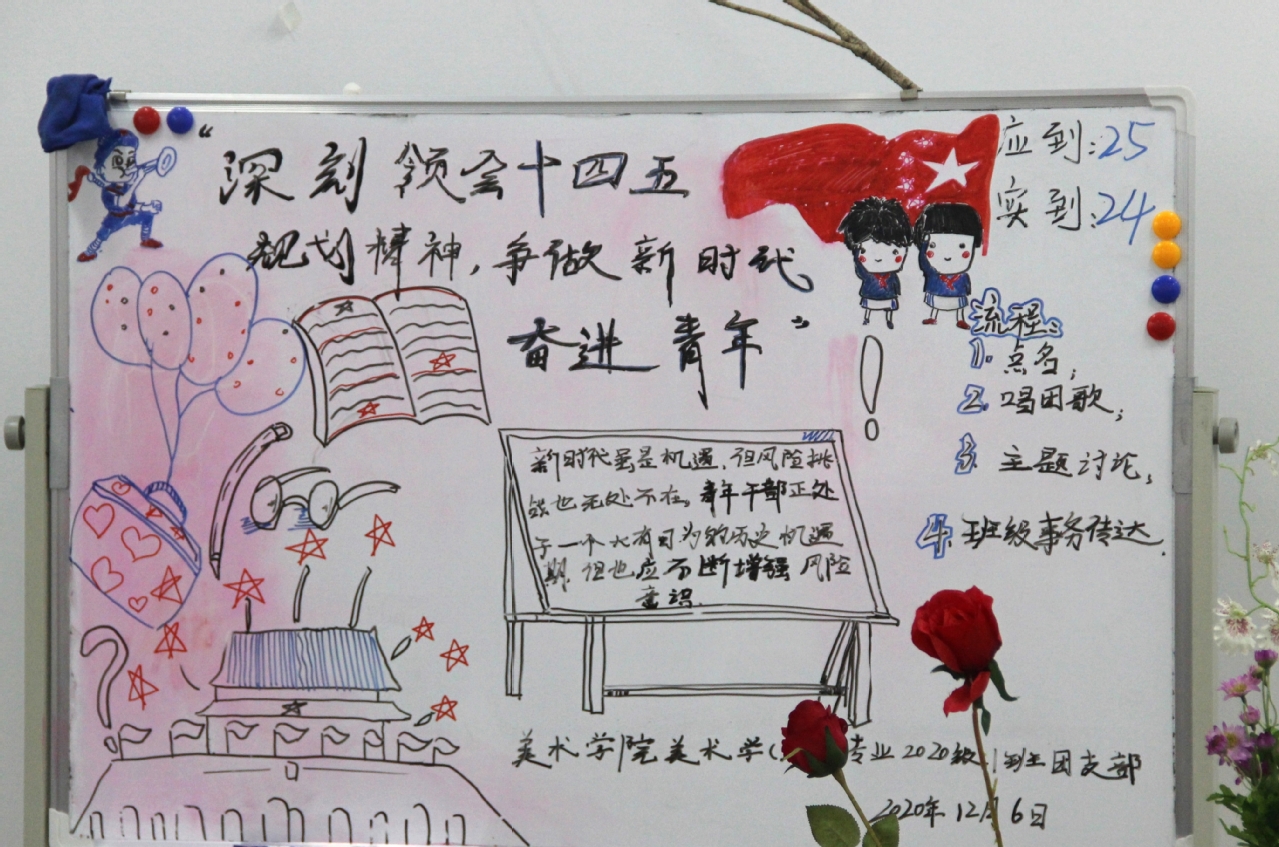 “深刻领会十四五
规划精神,争做新时代
奋进青年”
应到:25
实到:24
流程:
1.点名;
2.唱团歌;
3.主题讨论;
4.班级事务传达.
新时代虽是机遇,但风险挑
战也无处不在。青年干部正处
于一个大有可为的历史机遇
期.但也应不断增强风险
意识.
美术学院美术学( 专业2020级 班团支部
2020年12月6日